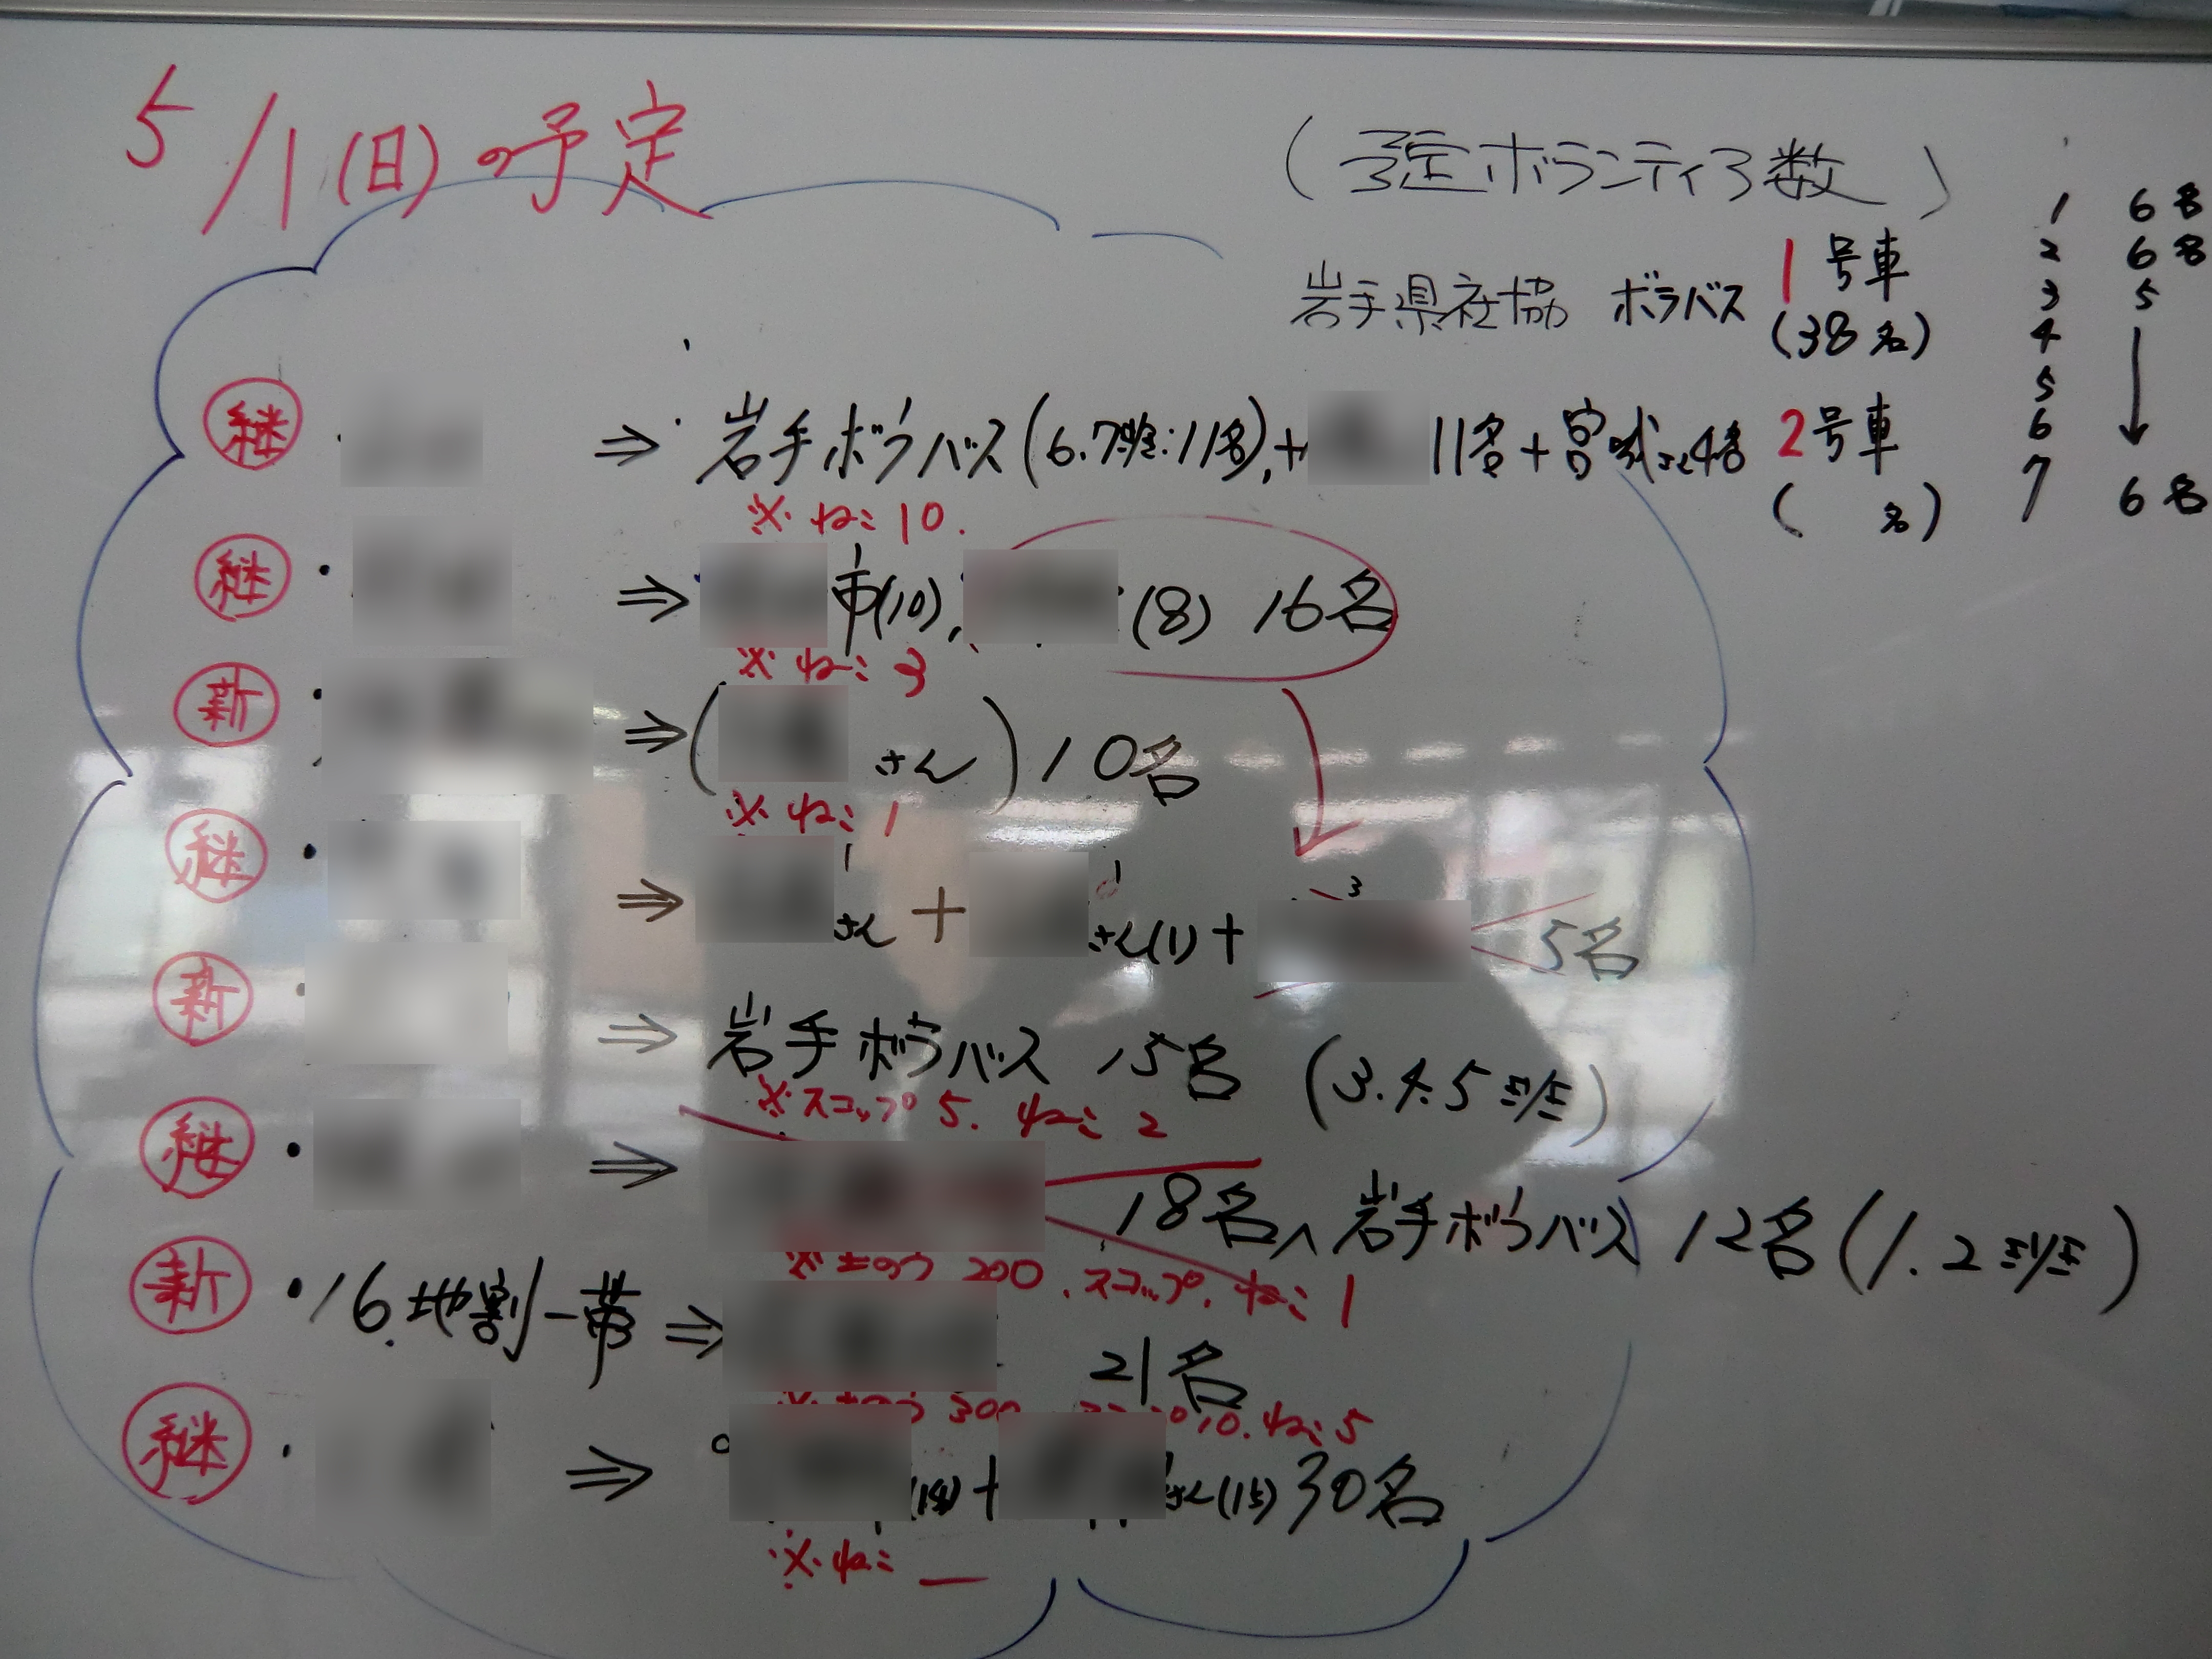 5/1(日)の予定
(予定ボランティア数)
岩手県社協 ボラバス 1号車
(38名)
2号車
( 名)
1 6名
2 6名
3 5
4
5
6 ↓
7 6名
継 ・ ⇒ 岩手ボラバス(6.7班:11名),+ 11名+宮城 4名
※ ねこ 10.
継 ・ ⇒ 市(10), (8) 16名
※ ねこ 3
新 ・ ⇒ ( さん) 10名
※ ねこ 1
継 ・ ⇒ さん + さん(1)+ 3 5名
新 ・ ⇒ 岩手ボラバス 15名 (3.4.5班)
※スコップ 5. ねこ 2
継 ・ ⇒ 18名、岩手ボラバス 12名(1.2班)
※土のう 200.スコップ.ねこ 1
新 ・16.地割一帯 ⇒ 21名
※土のう 300 10.ねこ5
継 ・ ⇒ + さん(15) 30名
※ねこ _